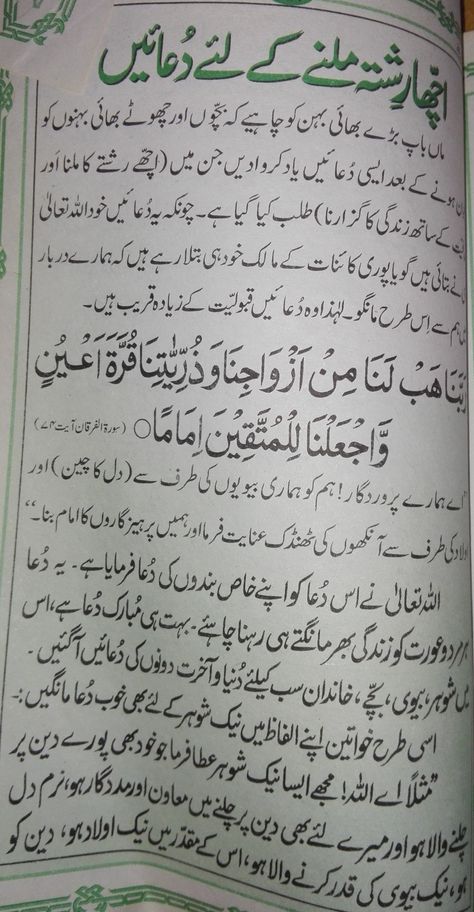 اچھا رشتہ ملنے کے لئے دُعائیں
ماں باپ بڑے بھائی بہن کو چاہیے کہ بچّوں اور چھوٹے بھائی بہنوں کو
ہونے کے بعد ایسی دُعائیں یاد کروادیں جن میں (اچھے رشتے کا ملنا اور
کے ساتھ زندگی کا گزارنا) طلب کیا گیا ہے۔ چونکہ یہ دُعائیں خود اللہ تعالیٰ
نے بتائی ہیں گویا پوری کائنات کے مالک خود ہی بتلا رہے ہیں کہ ہمارے دربار
ہم سے اِس طرح مانگو۔ لہٰذا وہ دُعائیں قبولیت کے زیادہ قریب ہیں۔
رَبَّنَا هَبْ لَنَا مِنْ اَزْوَاجِنَا وَذُرِّيّٰتِنَا قُرَّةَ اَعْيُنٍ
وَّاجْعَلْنَا لِلْمُتَّقِيْنَ اِمَامًا○ (سورۃ الفرقان آیت ۷۴)
اے ہمارے پروردگار! ہم کو ہماری بیویوں کی طرف سے (دل کا چین) اور
اولاد کی طرف سے آنکھوں کی ٹھنڈک عنایت فرما اور ہمیں پرہیزگاروں کا امام بنا۔‘‘
اللہ تعالیٰ نے اس دُعا کو اپنے خاص بندوں کی دُعا فرمایا ہے۔ یہ دُعا
ہر مرد و عورت کو زندگی بھر مانگتے ہی رہنا چاہئے۔ بہت ہی مُبارک دُعا ہے، اس
میں شوہر، بیوی، بچّے، خاندان سب کیلئے دُنیا و آخرت دونوں کی دُعائیں آگئیں۔
اسی طرح خواتین اپنے الفاظ میں نیک شوہر کے لئے بھی خوب دُعا مانگیں:۔
’’مثلاً اے اللہ! مجھے ایسا نیک شوہر عطا فرما جو خود بھی پورے دین پر
چلنے والا ہو اور میرے لئے بھی دین پر چلنے میں معاون اور مددگار ہو، نرم دل
ہو، نیک بیوی کی قدر کرنے والا ہو، اس کے مقدّر میں نیک اولاد ہو، دین کو